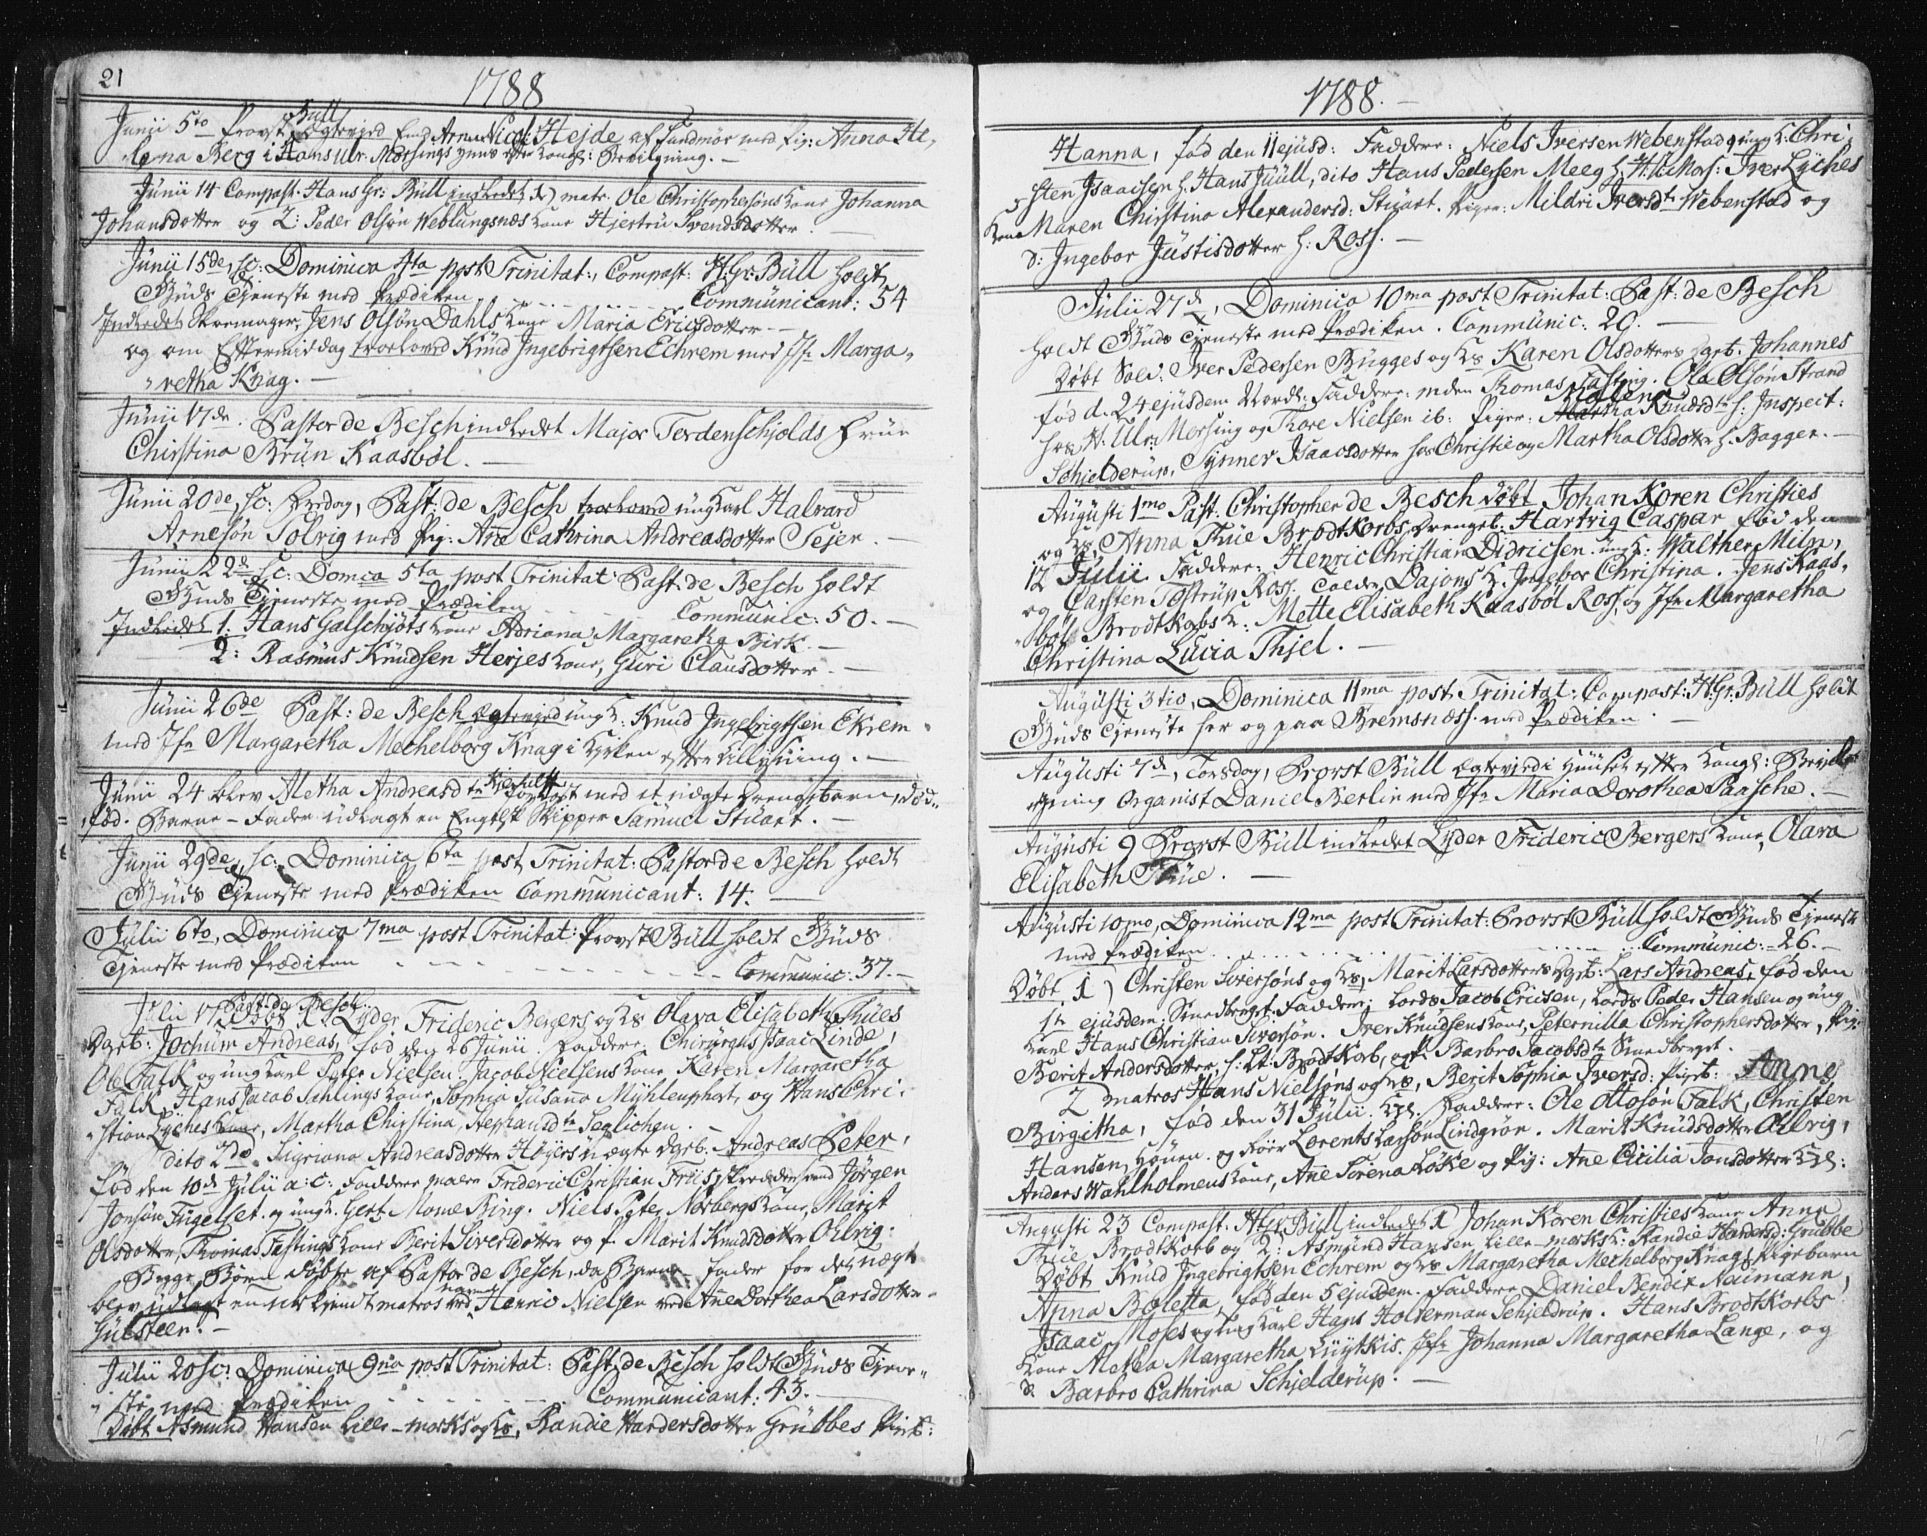 21
1788
Junii 5to Provst Büll Egteviede Nicol: Hejde af Sundmör med Pig: Anna He,
lena Berg i Hans Ulr. Mørsings efter Kongl: Bevilgning. —
Junii 14 Compast. Hans Gr: Büll indledet 1) matr. Ole Christophersöns Kone Johanna
Johansdotter og 2: Peder Olsön Weblungsnæs Kone Hjertru Svendsdotter. —
Junii 15de, sc: Dominica 4ta post Trinitat:, Compast: H: Gr: Büll holdt
Güds Tjeneste med Prædiken . . . . . Communicant: 54
Indledet Skomager, Jens Olsön Dahls Kone Maria Ericsdotter. —
og om Eftermiddag troelovid Knüd Ingebrigtsen Echrem med Jfr Marga,
retha Knag. —
Junii 17de. Pastor de Besch indledet Major Tordenschjolds Früe
Christina Brün Kaasböl. —
Junii 20de, sc: Fredag, Past: de Besch troelovid ung Karl Halvard
Arnesön Solvig med Pig: Ane Cathrina Andreasdotter Sejer. —
Junii 22d sc: Domca 5ta post Trinitat: Past: de Besch holdt
Güds Tjeneste med Prædiken . . . Communic: 50. —
Indledet 1. Hans Galschjöts Kone Adriana Margaretha Birk. —
2: Rasmüs Knüdsen Herjes Kone, Guri Clausdotter —
Junii 26de Past: de Besch Egteviede ung K: Knud Ingebrigtsen Ekrem
med Jfr Margaretha Mechelborg Knag i Kirken efter tillysning. —
Junii 24 blev Aletha Andreasdtr forløst med et uægte Drengebarn, död,,
fød. Barne-Fader udlagt en Engelsk Skipper Samuel Stuart. —
Junii 29de, sc: Dominica 6ta post Trinitat: Pastor de Besch holdt
Güds Tjeneste med Prædiken Communicant: 14. —
Julii 6to, Dominica 7ma post Trinitat: Provst Büll holdt Güds
Tjeneste med Prædiken — — — Communic: 37. —
Julii 17 Past: de Besch döbt 1. Lyder Frideric Bergers og Ks Olava Elisabeth Thües
Dgeb: Jochum Andreas, fød den 26 Junii. Faddere: Chirurgus Isaac Linde,
Ole Falk og ung Karl Peter Nielsen. Jacob Nielsens Kone Karen Margaretha
Falk, Hans Jacob Sahlings Kone, Sophia Susana Mühlenphort, og Hans Chri:
stian Lyches Kone, Martha Christina, Nephandtr Seglichen. —
dito 2do. Sigriana Andreasdotter Höyers üægte Dgeb: Andreas Peter,
fød den 10de Julii a: c: Faddere Frideric Christian Friis, Skrædersvend Jörgen
Jonsön Fügelset og ungK. Gert Mome Bing. Niels Peter Norbergs Kone, Marit
Olsdotter, Thomas Fastings Kone Berit Siversdotter og P. Marit Knudsdotter Ohrig:
Begge Börn döbte af Pastor de Besch, da Barne-Fader for det üægte
blev udlagt en ubekjendt matros ved navn Henric Nielsen ved Ane Dorthea Larsdotter
Gülsteen. —
Julii 20 sc: Dominica 9na post Trinitat: Past: de Besch holdt Güds Tjene,,
ste med Prædiken . . . . . Communicant: 43. —
Döbt Asmund Hansen Lille-morks og Ks, Randie Hardersdotter Grübbes Pigeb:
1788. —
Hanna, fød den 11 ejusd: Faddere: Niels Iversen Webenstad, ung K. Chri,
sten Isaacsen h. Hans Juüll, dito Hans Pedersen Meeg h. H: Iver Lyches
Kone Maren Christina Alexandersd: Stüart. Piger: Mildri Iversdtr Webenstad og
D: Ingebor Jüstisdotter h: Ross. —
Julii 27de, Dominica 10ma post Trinitat: Past: de Besch
holdt Güds Tjeneste med Prædiken. Communic: 20. —
Döbt Sold: Iver Pedersen Brügges og Ks Karen Olsdotters Dgeb. Johannes
fød d. 24 ejüsdem Nordl: Faddere: Thomas Fasting. Ola Olsön Strand
hos H. Ulr: Mørsing og Thore Nielsen ib: Piger: Malena Knüdsdtr h: Inspect:
Schjelderup, Synner Isaacsdotter hos Christie og Martha Olsdotter h. Bagger. —
Augusti 1mo Past. Christopher de Besch döbt Johan Koren Christies
og Ks, Anna Thüe Brodtkorbs Drengeb: Hartvig Caspar fød den
12 Julii. Faddere: Henric Christian Didricsen. ung K: Walther Miln,
og Carsten Tostrup Ross. Colds Dajons K. Ingebor Christina. Jens Kaas,
böl Brodtkobs K: Mette Elisabeth Kaasböl Ross, og Jfr Margaretha
Christina Lucia Thjel. —
Augusti 3tio, Dominica 11ma post Trinitat: Compast: H: Gr: Büll holdt
Güds Tjeneste her og paa Bremsnæss med Prædiken. —
Augusti 7de, Torsdag, Provst Büll Egteviede i Huuset efter Kongl: Bevil-
gning Organist Daniel Berlin med Jfr Maria Dorothea Paasche. —
Augusti 9 Provst Büll indledet Lyder Frideric Bergers Kone, Olava
Elisabeth Thüe. —
Augusti 10mo, Dominica 12ma post Trinitat: Provst Büll holdt Güds Tjeneste
med Prædiken . . . . . Communic: 26. —
Döbt 1) Christen Siversöns og Ks, Marit Larsdotters Dgeb: Lars Andreas, fød den
1te ejusdem Smedberget. Faddere: Lords Jacob Ericsen, Lords Peder Hansen og ung
Karl Hans Christian Siversön. Iver Knüdsens Kone, Peternilla Christophersdotter, Pige
Berit Andersdotter, h: Lt: Brodtkorb, og P. Barbro Jacobsdtr Smedberget.
2 Matros Hans Nielsöns og Ks, Berit Sophia Iversd: Pigeb: Anne
Birgitha, fød den 31 Julii. Faddere: Ole Ottosön Falk, Christen
Hansen og Lorents Larsön Lindgrön. Marit Knüdsdotter Ohrig,
Anders Wahlholmens Kone, Ane Sorena Løke og Pig: Ane Cicilia Jonsdotter
Augusti 23 Compast. H: Gr: Büll indledet 1) Johan Koren Christies Kone Anna
Thüe Brodtkorb og 2: Asmund Hansen Lille-morks K: Randie Hardersd: Grübbe
Döbt Knüd Ingebrigtsen Echrem og Ks Margaretha Mechelborg Knags Pigebarn
Anna Boletta, fød den 5 ejusdem. Faddere Daniel Bendix Neimann,
Isaac Moses og ung Karl Hans Holterman Schjeldrup. Hans Brodtkorbs
Kone Aletha Margaretha Lüytkis. Jfr Johanna Margaretha Lange, og
D: Barbro Cathrina Schjelderüp. —